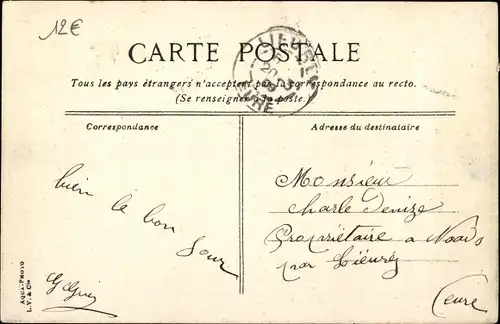 12€
CARTE POSTALE
Tous les pays étrangers n'acceptent pas la correspondance au recto.
(Se renseigner à la poste.)
Correspondance
Adresse du destinataire
bien le bon
Jour
Monsieur
Charle Denize
Propriétaire a
par Lieurey
Eure
AQUA-PHOTO
L. V. & Cie